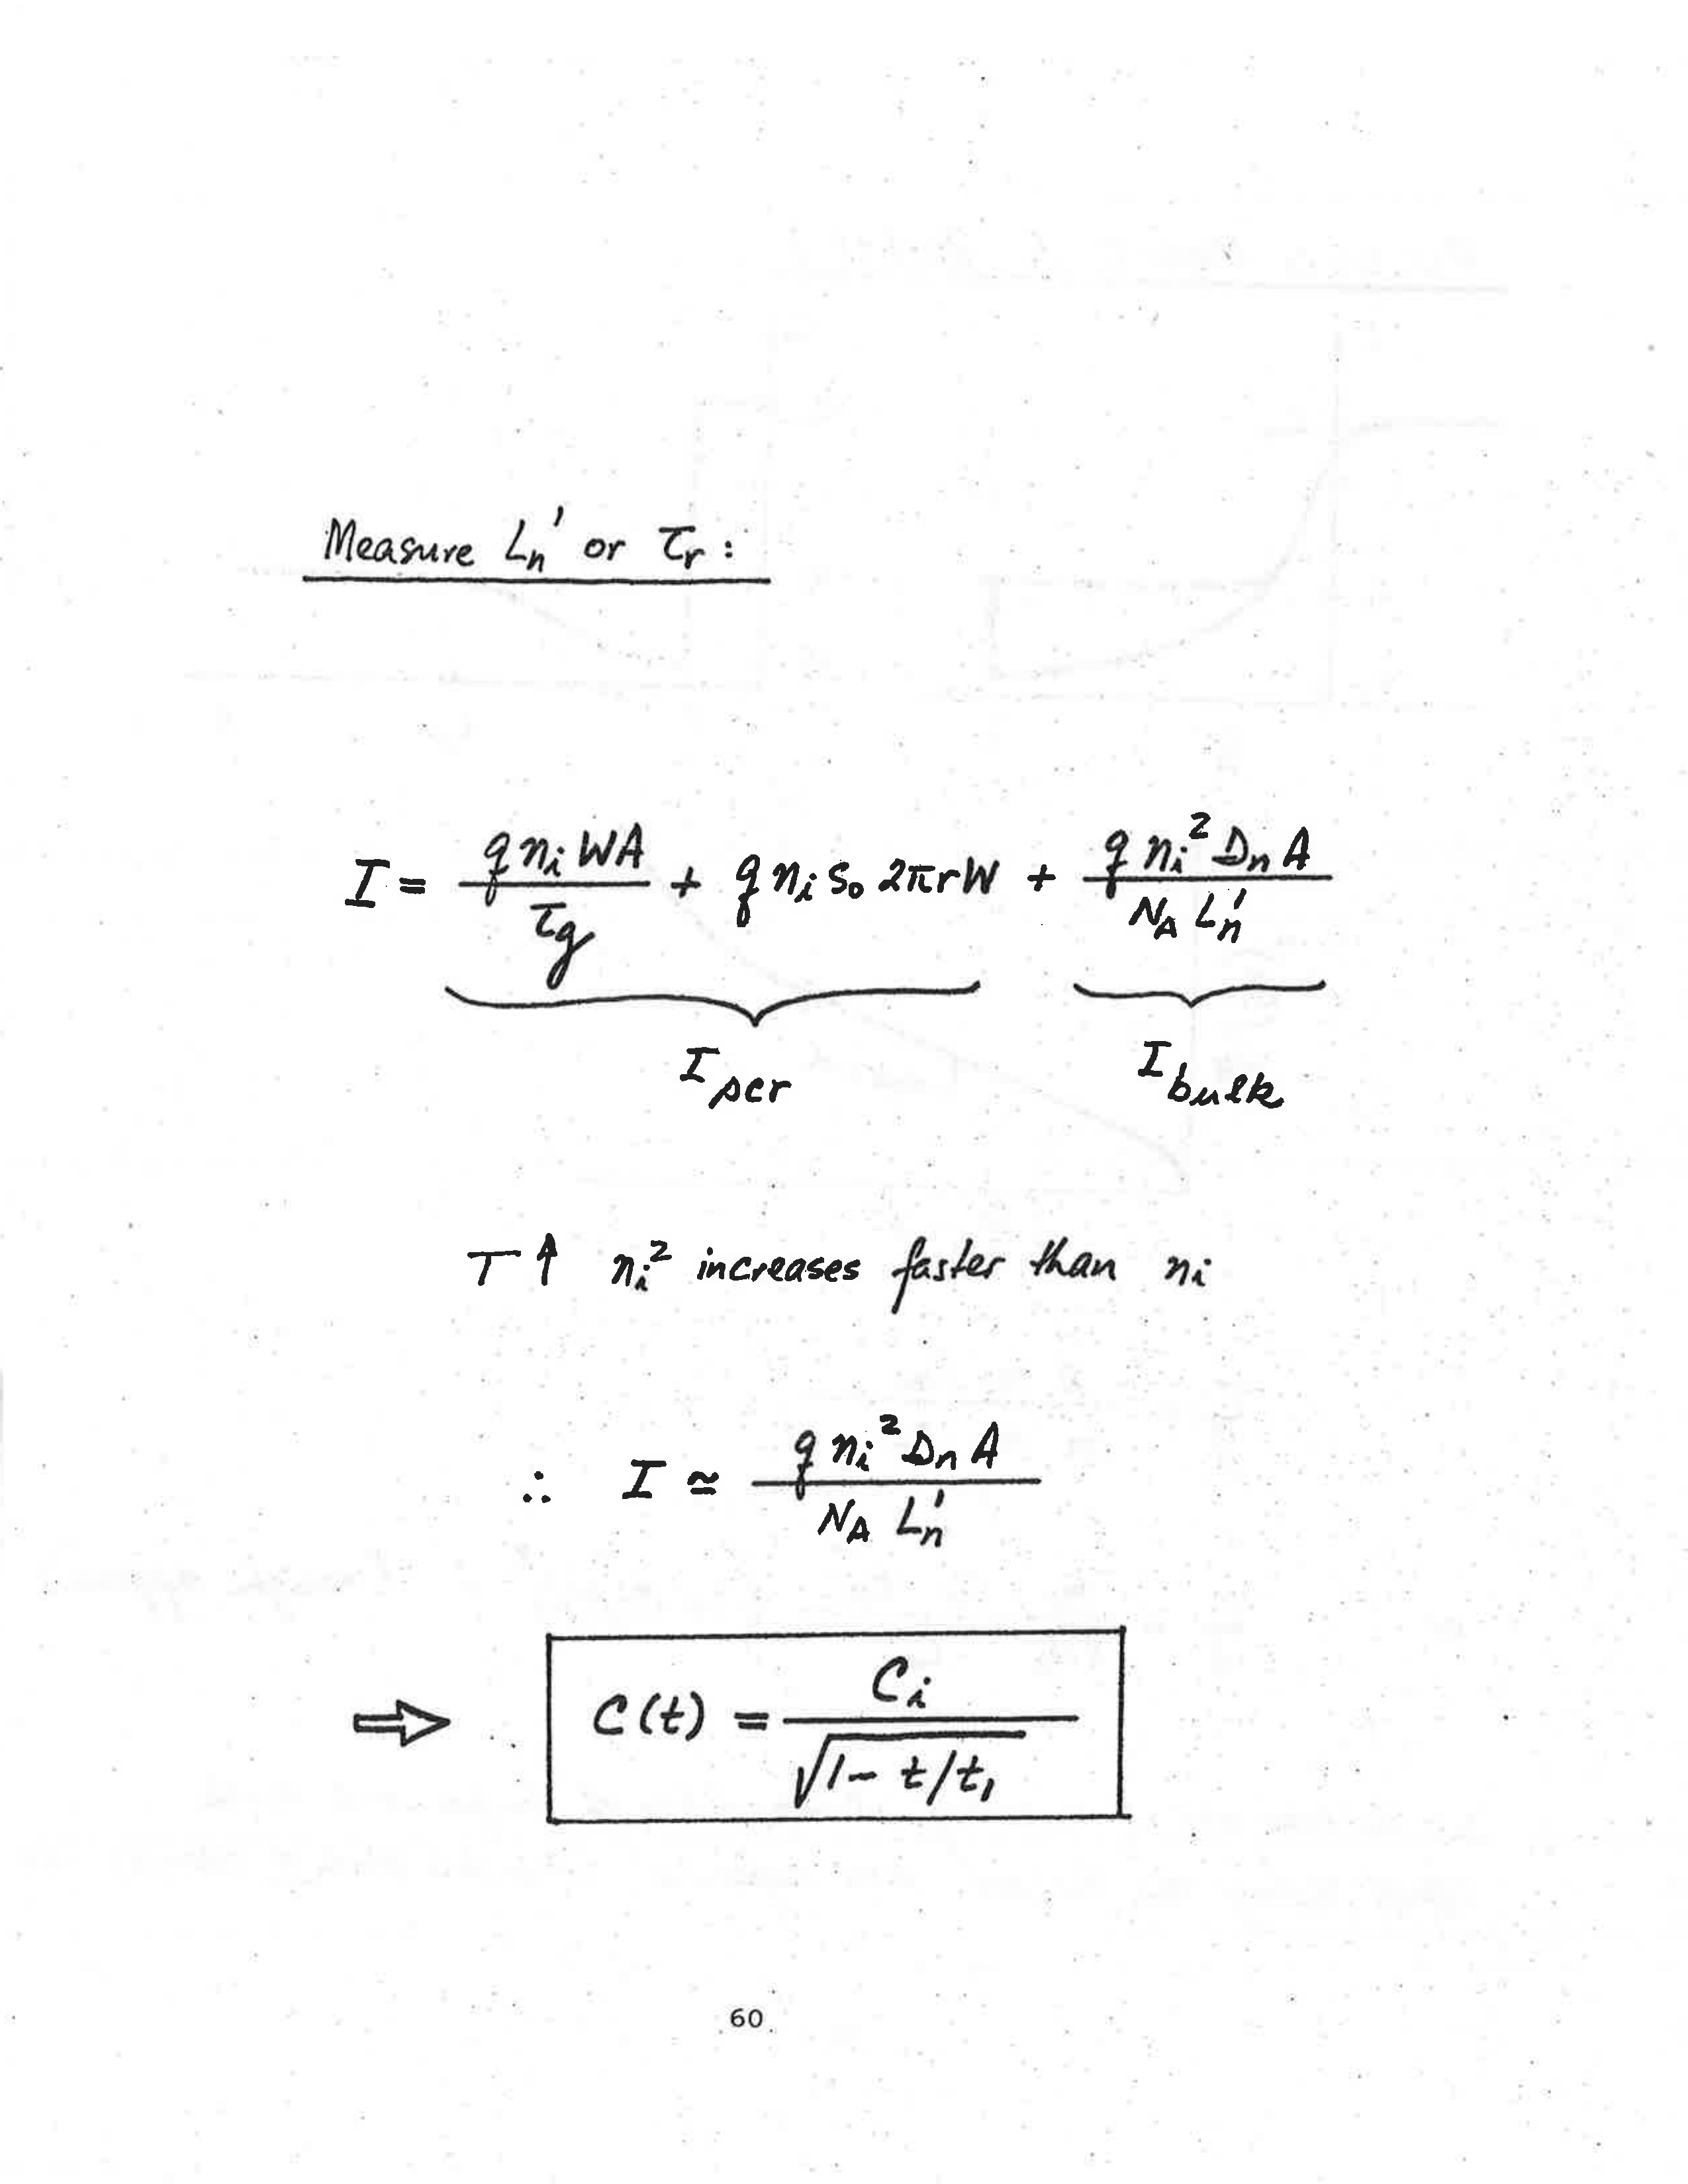 Measure Lₙ' or τᵣ :
I = q nᵢ W A / τg + q nᵢ s₀ 2πrW + q nᵢ² Dₙ A / N_A Lₙ'
I scr I bulk
T ↑ nᵢ² increases faster than nᵢ
∴ I ≃ q nᵢ² Dₙ A / N_A Lₙ'
⇒ C(t) = Cᵢ / √(1 - t/t₁)
60